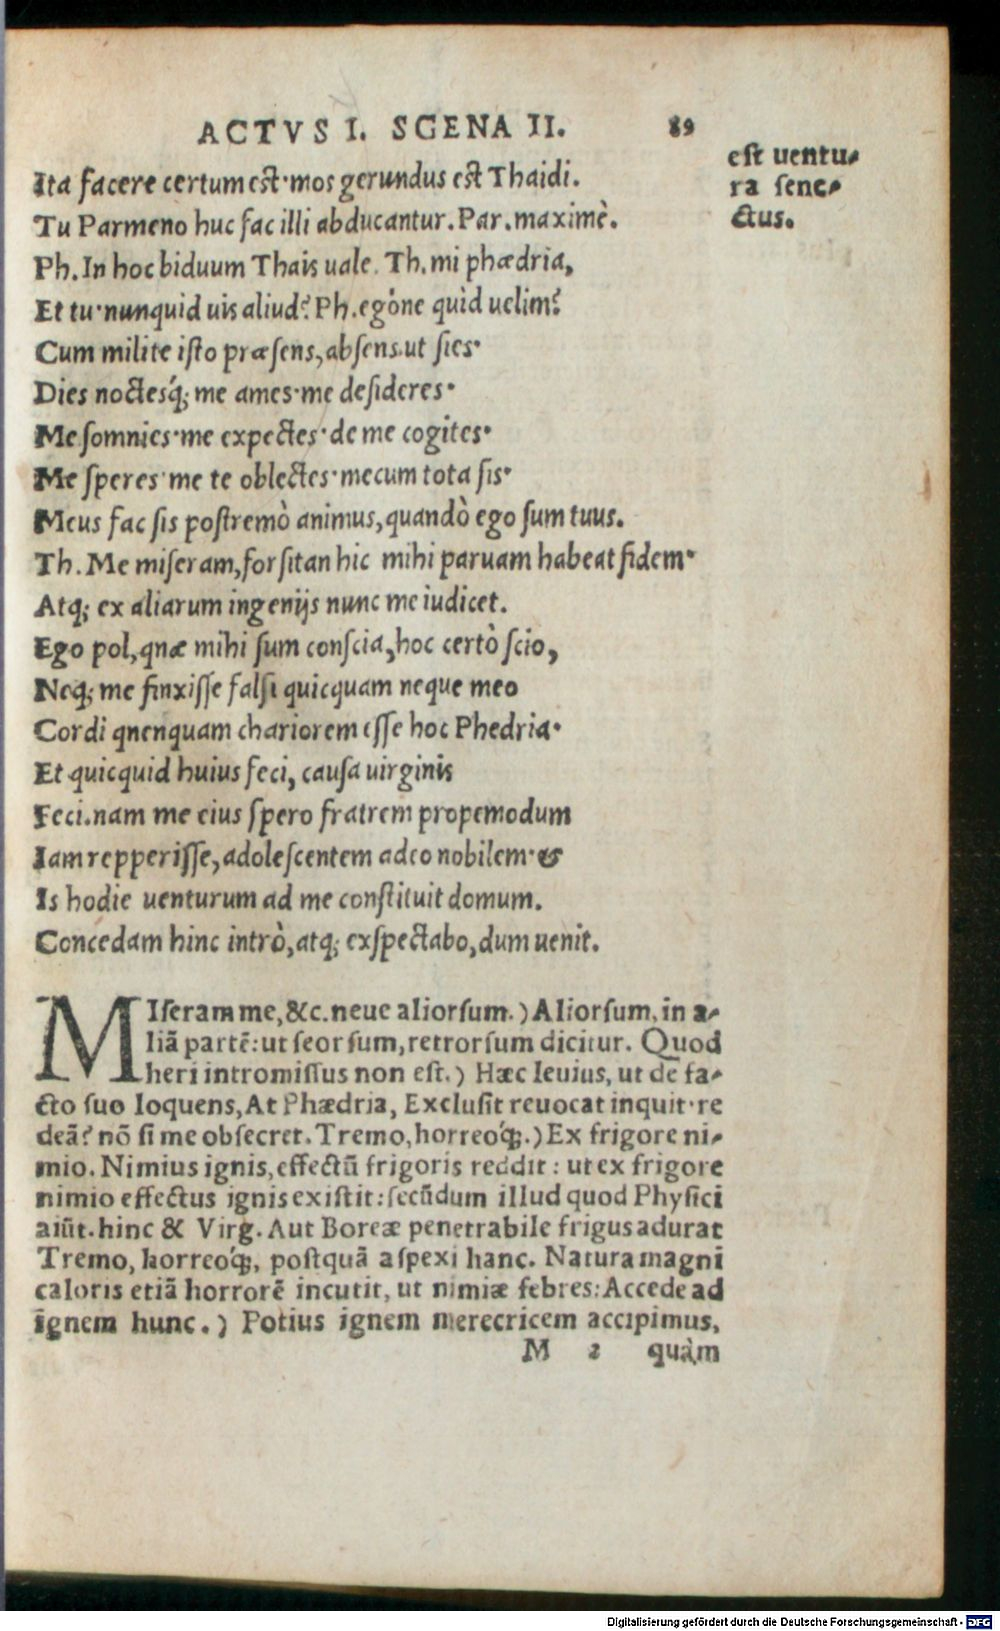 ACTVS I. SCENA II. 89
est uentu-
ra senc-
ctus.
Ita facere certum est·mos gerundus est Thaidi.
Tu Parmeno huc fac illi abducantur. Par. maximè.
Ph. In hoc biduum Thais uale. Th. mi phædria,
Et tu·nunquid uis aliud? Ph. egóne quid uelim?
Cum milite isto præsens, absens ut sies·
Dies noctesq́; me ames·me desideres·
Me somnies·me expectes·de me cogites·
Me speres·me te oblectes·mecum tota sis·
Meus fac sis postremò animus, quandò ego sum tuus.
Th. Me miseram, forsitan hic mihi paruam habeat fidem·
Atq; ex aliarum ingenijs nunc me iudicet.
Ego pol, qnæ mihi sum conscia, hoc certò scio,
Neq; me finxisse falsi quicquam neque meo
Cordi qnenquam chariorem esse hoc Phedria·
Et quicquid huius feci, causa uirginis
Feci. nam me eius spero fratrem propemodum
Iam repperisse, adolescentem adeo nobilem·&
Is hodie uenturum ad me constituit domum.
Concedam hinc intrò, atq; exspectabo, dum uenit.
MIseram me, &c. neue aliorsum.) Aliorsum, in a-
liã partẽ: ut seorsum, retrorsum dicitur. Quod
heri intromissus non est.) Hæc leuius, ut de fa-
cto suo loquens, At Phædria, Exclusit reuocat inquit·re
deã? nõ si me obsecret. Tremo, horreoq́;.) Ex frigore ni-
mio. Nimius ignis, effectũ frigoris reddit: ut ex frigore
nimio effectus ignis existit: secũdum illud quod Physici
aiũt. hinc & Virg. Aut Boreæ penetrabile frigus adurat
Tremo, horreoq́;, postquã aspexi hanc. Natura magni
caloris etiã horrorẽ incutit, ut nimiæ febres: Accede ad
ignem hunc.) Potius ignem merecricem accipimus,
M 2 quàm
Digitalisierung gefördert durch die Deutsche Forschungsgemeinschaft - DFG